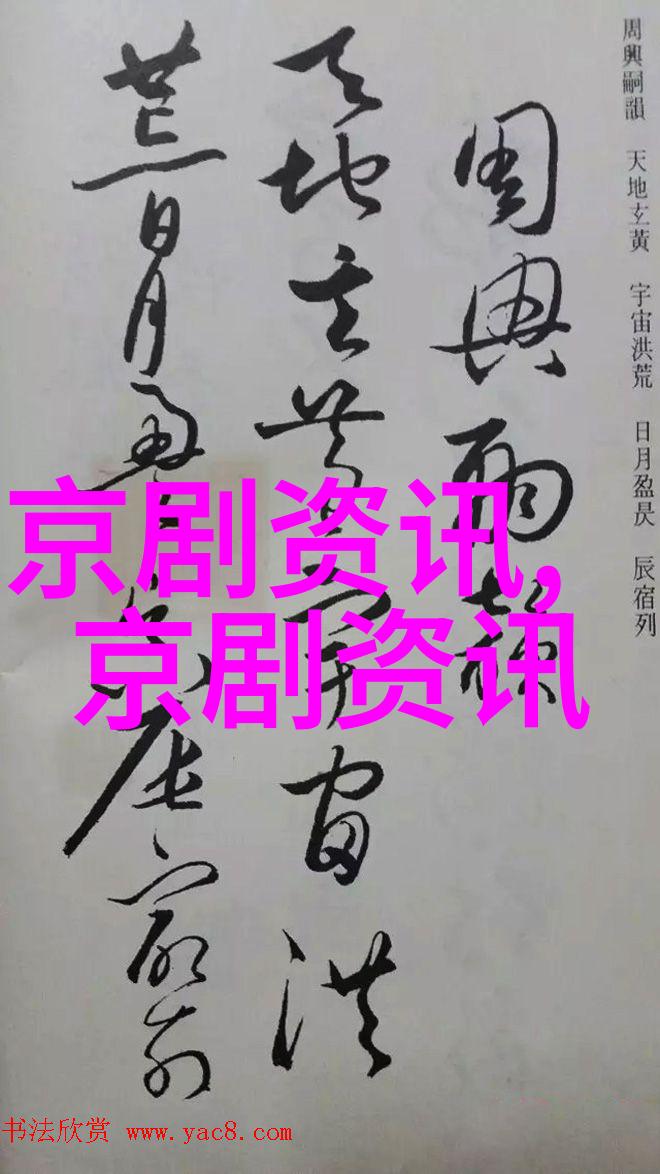 周興嗣韻 天地玄黃 宇宙洪荒 日月盈昃 辰宿列
周興嗣韻
天地玄黃宇宙洪
荒日月盈昃辰宿列
京剧资讯,
京剧资讯
书法欣赏 www.yac8.com